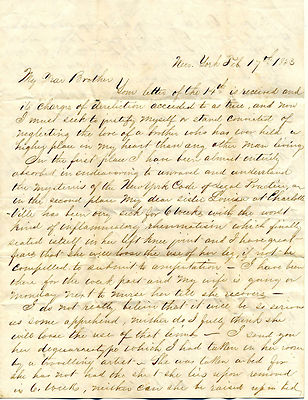 New York Feb 17th 1853
My Dear Brother
Your letter of the 14th is received and
its charge of dereliction acceded to as true, and now
I must seek to justify myself or stand convicted of
neglecting the love of a brother who has ever held a
higher place in my heart than any other man living
In the first place I have been almost entirely
absorbed in endeavoring to unravel and understand
the mysteries of the New York Code of Legal Practice, &
in the second place My dear sister Louisa at Charlotte
ville has been very sick for 6 weeks with the worst
kind of inflammatory rheumatism which finally
seated itself in her left knee joint and I have great
fears that she will loose the use of her leg, if not be
compelled to submit to amputation — I have been
there for the week past and my wife is going on
Monday next to nurse her till she recovers —
I do not really believe that it will be so seri-
ous as some apprehend, neither do I just think she
will loose the use of that limb — I send you
her daguereotype which I had taken in her room
by a travelling artist — She was taken a bed for
she has not had the she lies upon removed
in 6 weeks, neither can she be raised up in bed